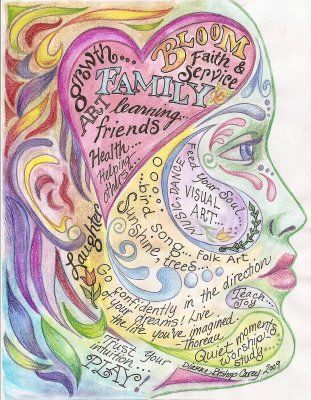 growth...
BLOOM
Faith &
Service
FAMILY
ART
learning...
friends
Health...
Helping
Others...
Laughter
MUSIC, DANCE
Feed your Soul...
VISUAL
ART...
bird song...
Sunshine,
trees...
Folk Art
Go confidently in the direction
of your dreams! Live
the life you've imagined.
Thoreau
Teach...
Joy
Trust Your
intuition...
PLAY!
Quiet moments
worship
study...
2009